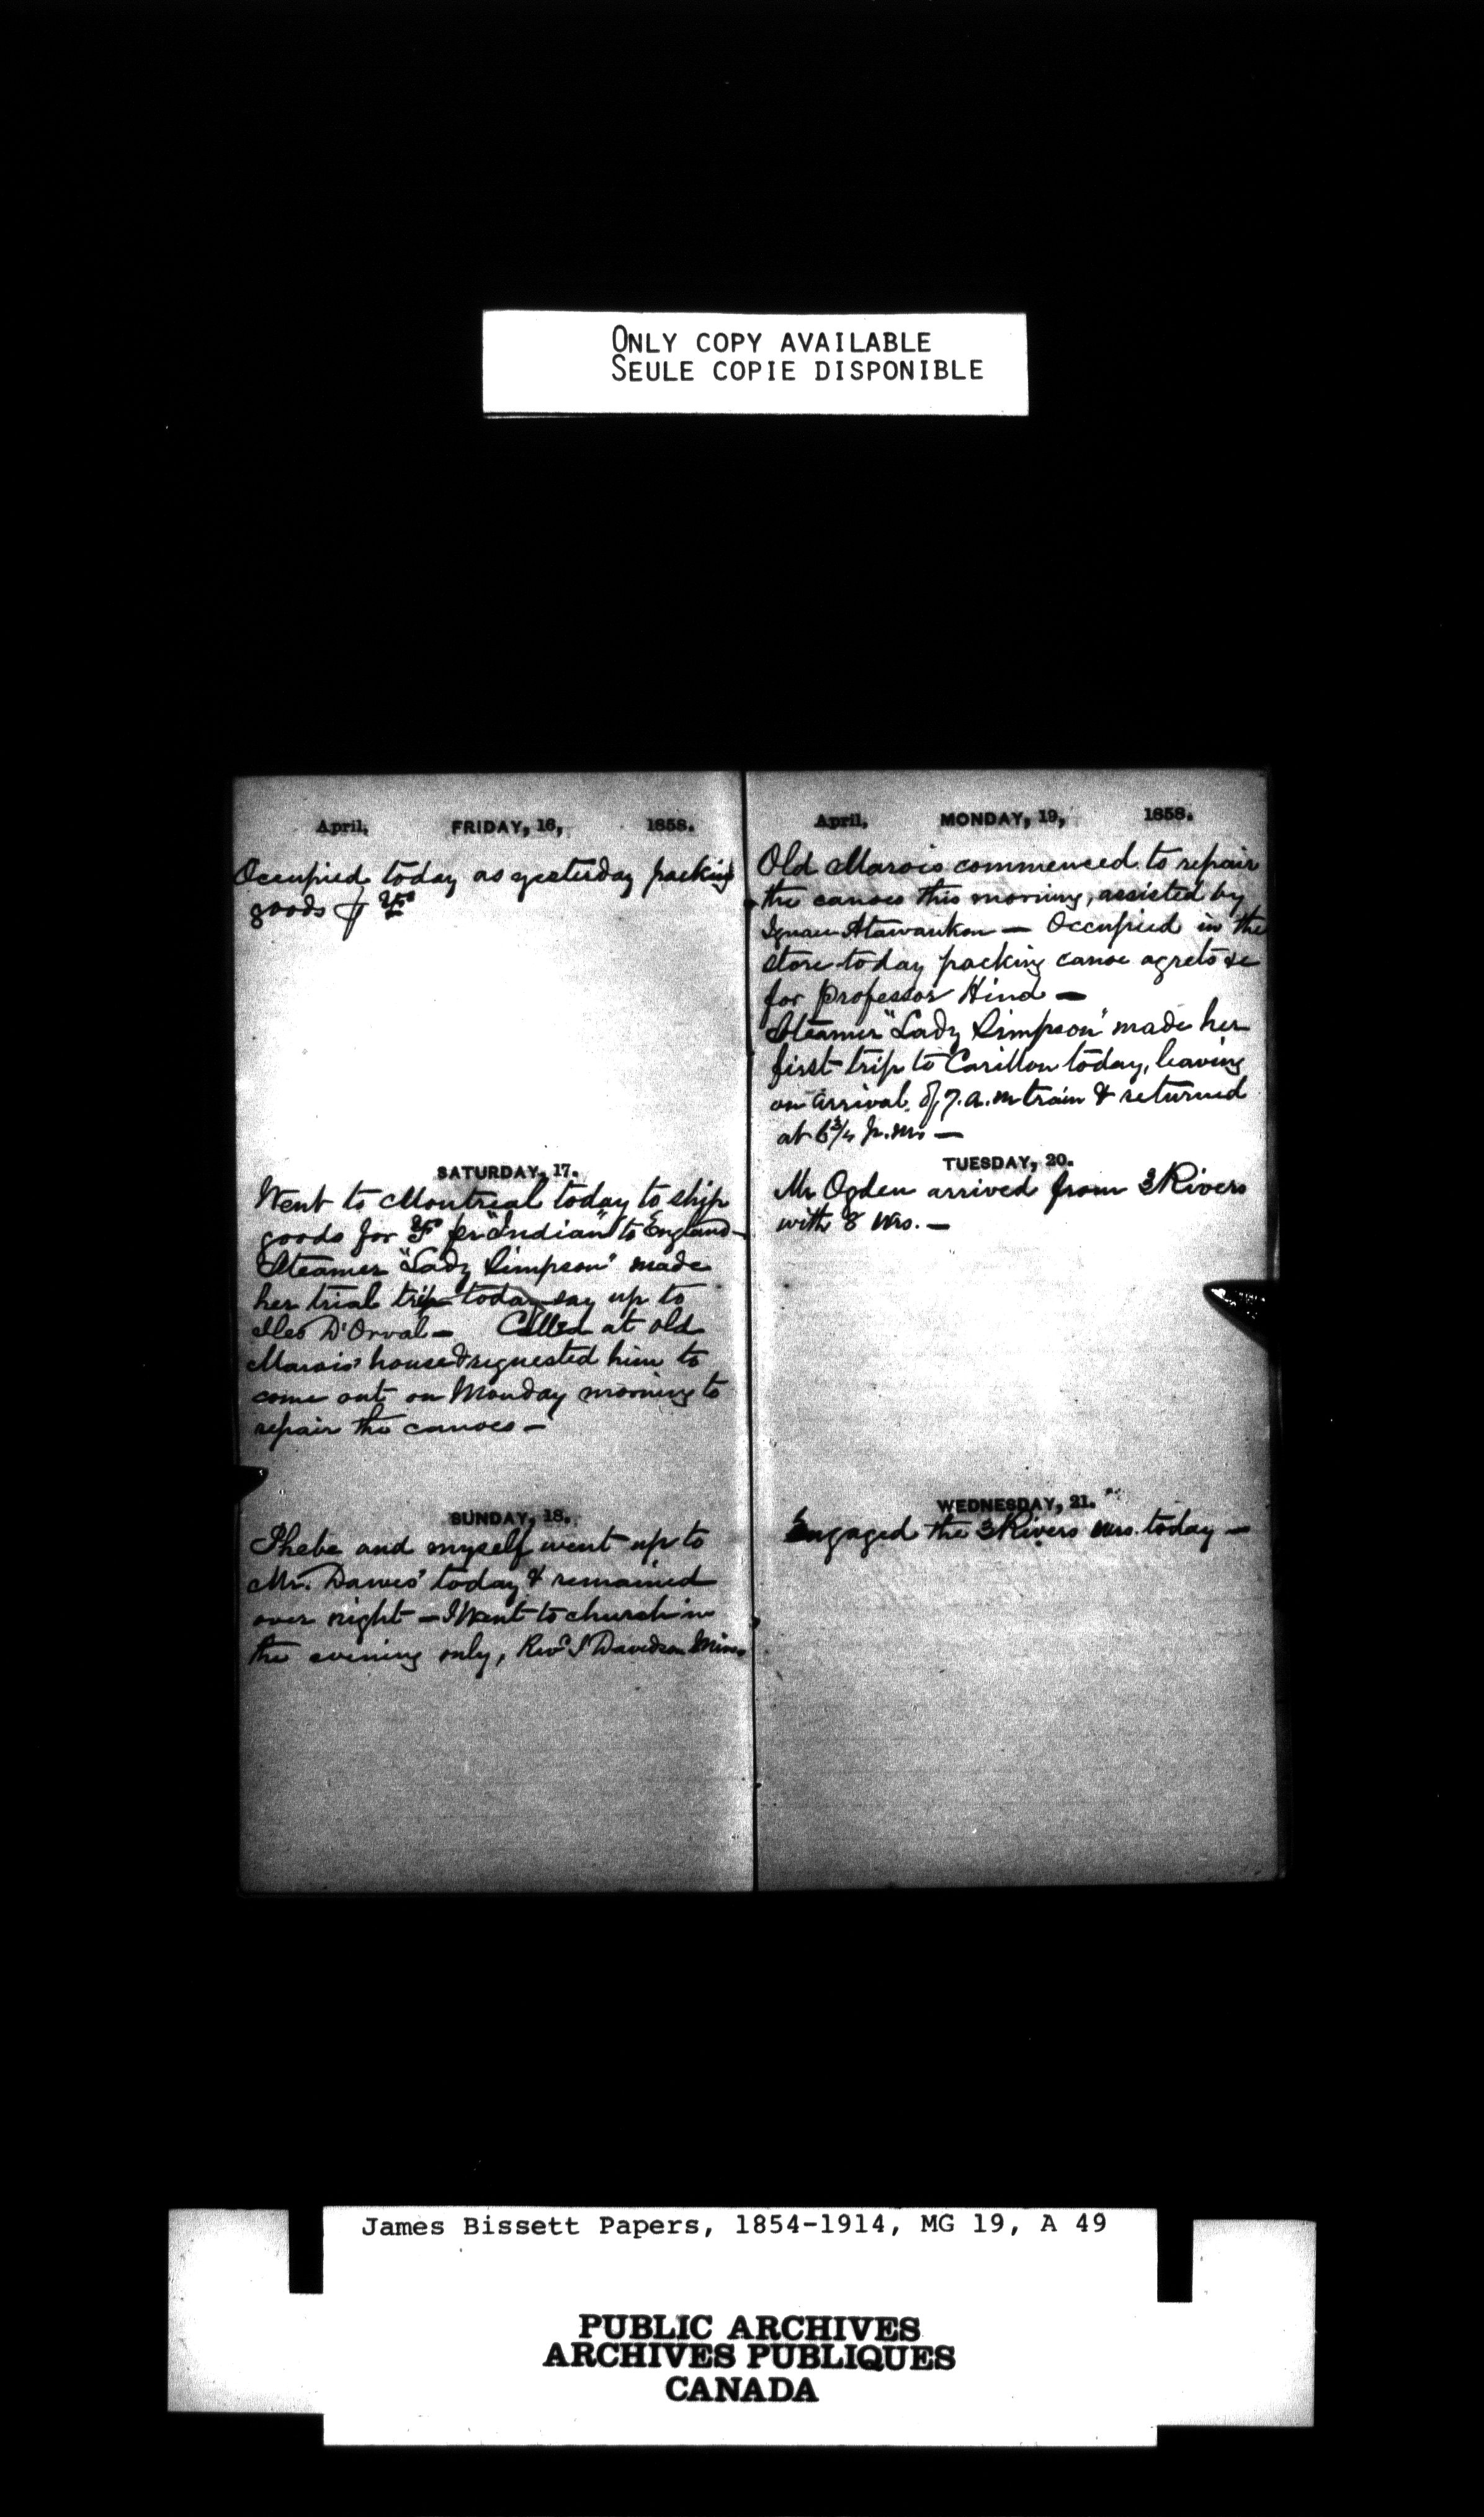 ONLY COPY AVAILABLE
SEULE COPIE DISPONIBLE
April, FRIDAY, 16, 1858.
Occupied today as yesterday packing
goods
SATURDAY, 17.
Went to Montreal today to ship
goods for YF per "Indian" to England -
Steamer "Lady Simpson" made
her trial trip today say up to
Iles D'Orval - Called at old
Marois' house & requested him to
come out on Monday morning to
repair the canoes -
SUNDAY, 18.
Phebe and myself went up to
Mr. Dawes' today & remained
over night - I Went to church in
the evening only, Revd J Davidson Minr.
April, MONDAY, 19, 1858.
Old Marois commenced to repair
the canoes this morning, assisted by
Ignace Atawankon - Occupied in the
store today packing canoe agrets &c
for Professor Hind -
Steamer "Lady Simpson" made her
first trip to Carillon today, leaving
on arrival of 7. a.m train & returned
at 6¾ p.m. -
TUESDAY, 20.
Mr Ogden arrived from 3 Rivers
with 8 -
WEDNESDAY, 21.
Engaged the 3 Rivers today -
James Bissett Papers, 1854-1914, MG 19, A 49
PUBLIC ARCHIVES
ARCHIVES PUBLIQUES
CANADA